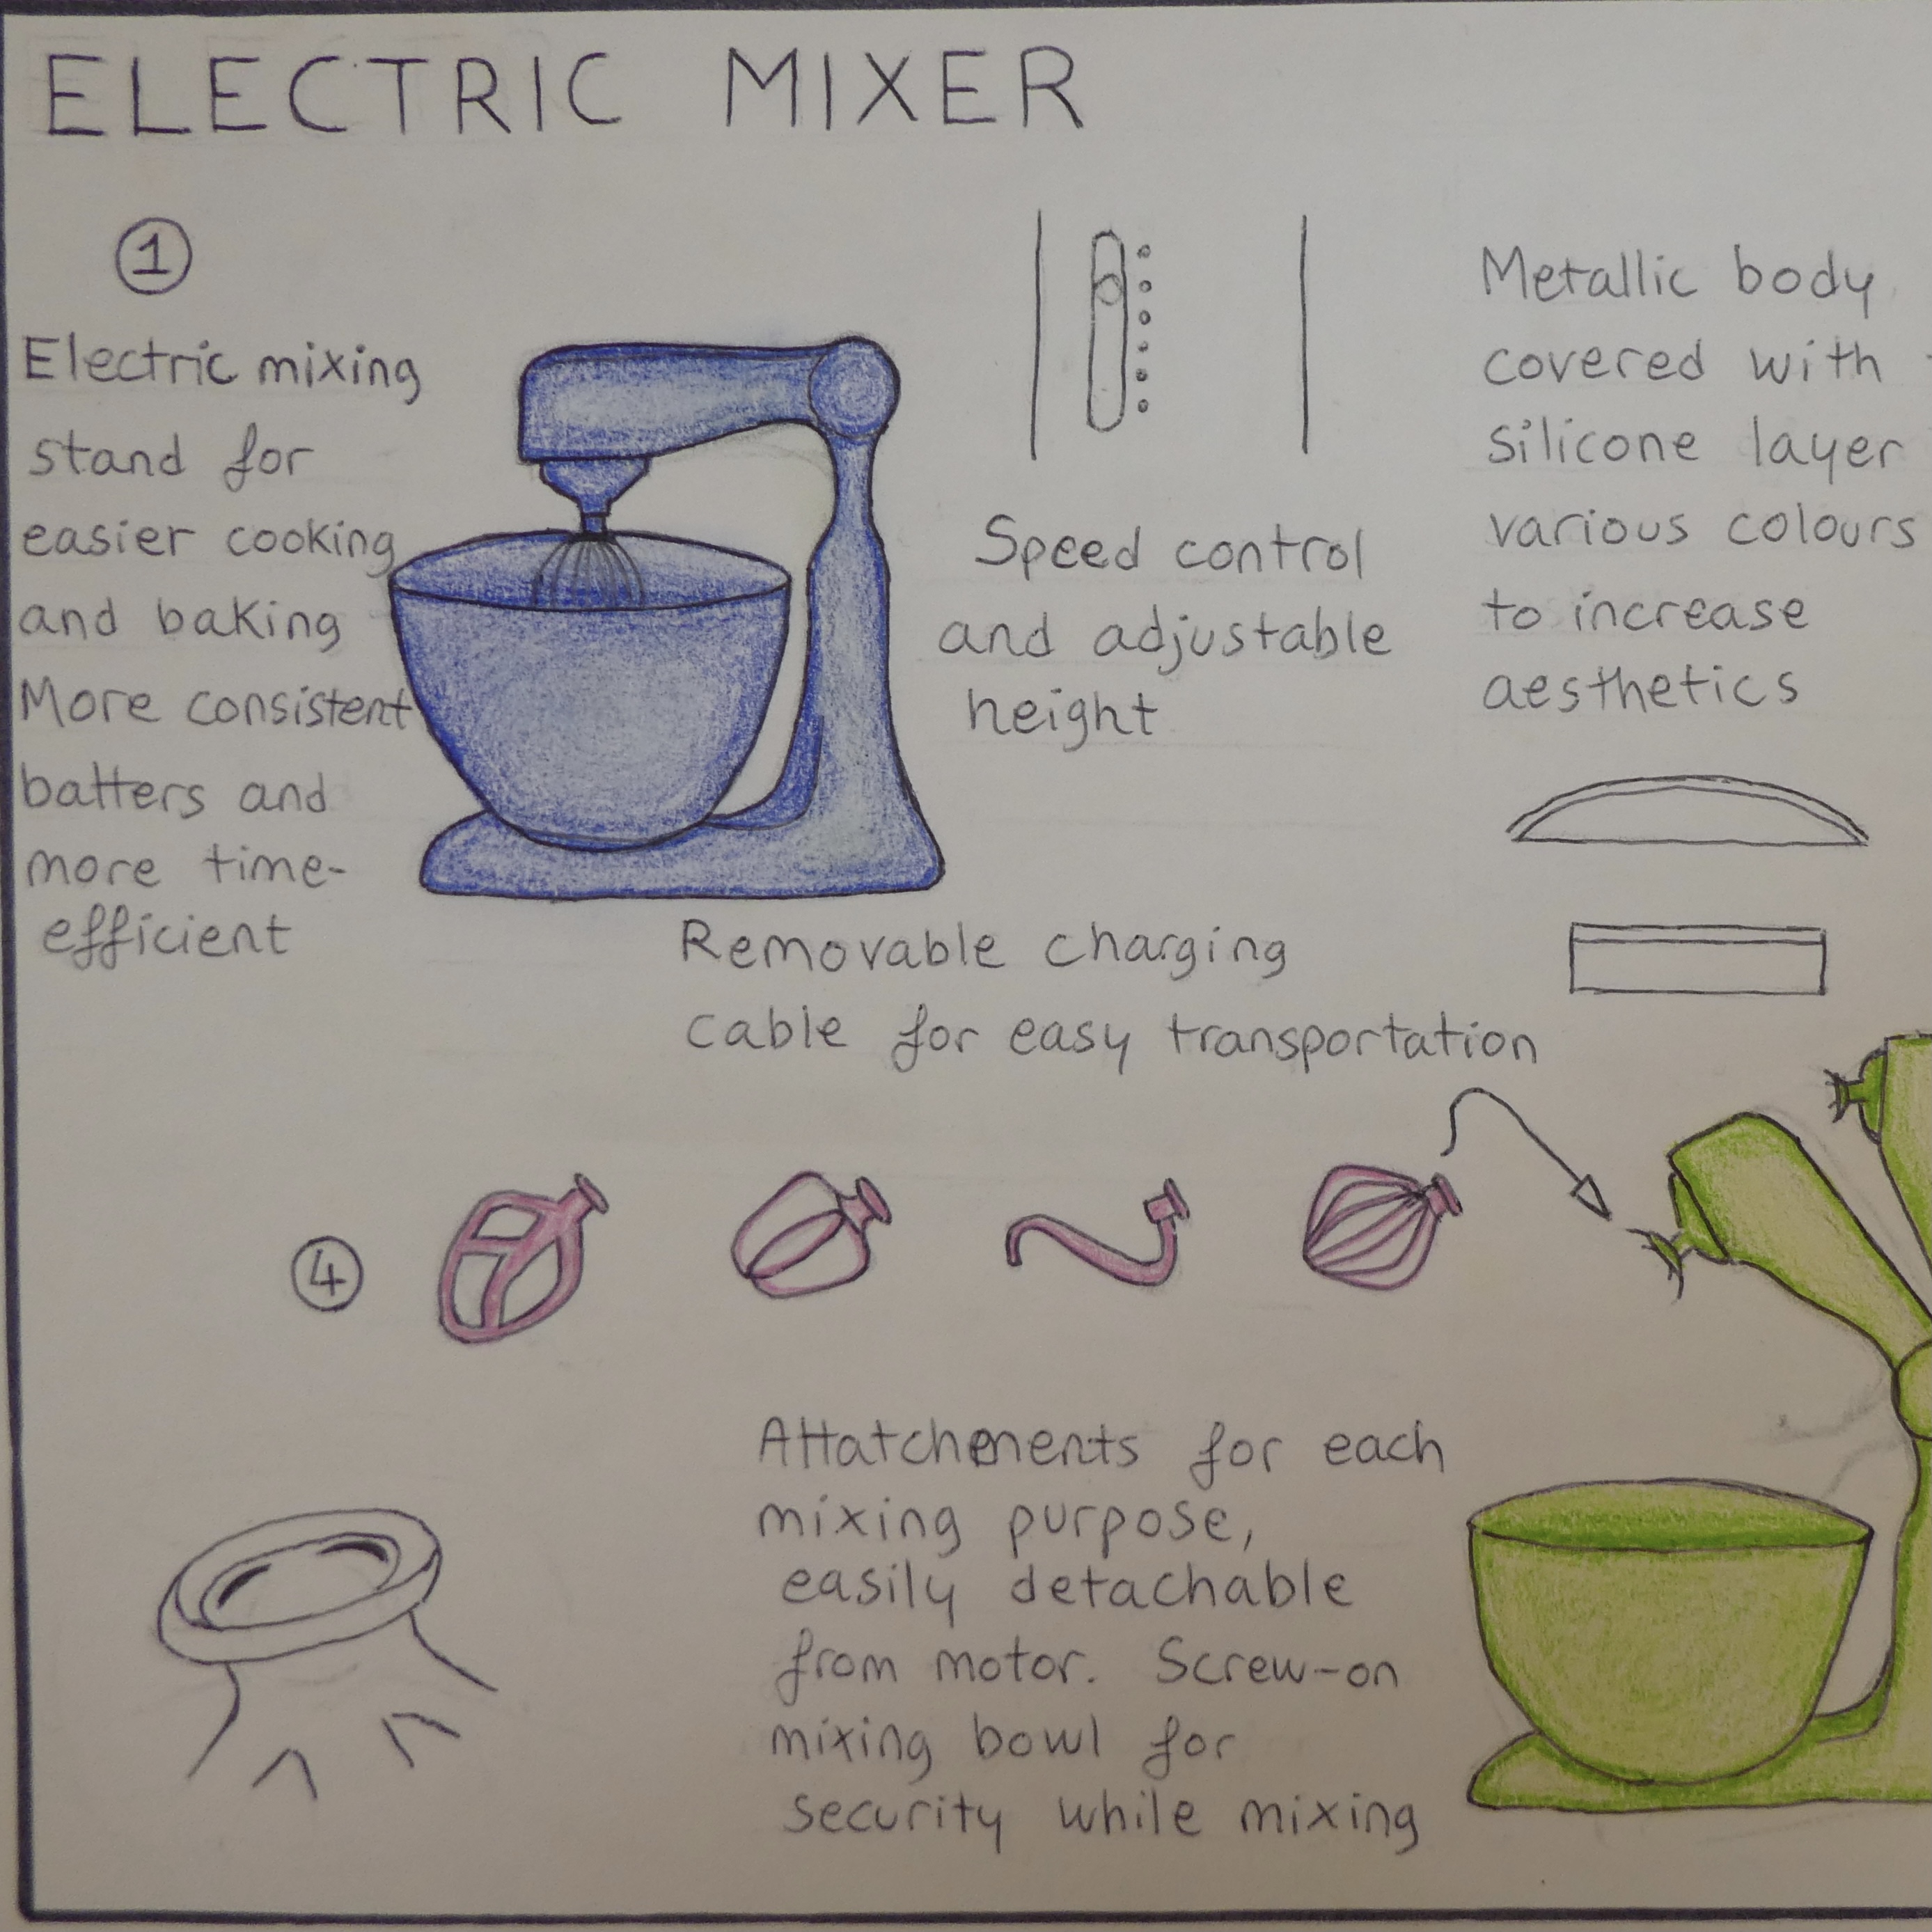 ELECTRIC MIXER
1
Electric mixing
stand for
easier cooking
and baking
More consistent
batters and
more time-
efficient
Speed control
and adjustable
height
Metallic body
covered with
silicone layer
various colours
to increase
aesthetics
Removable charging
cable for easy transportation
4
Attatchments for each
mixing purpose,
easily detachable
from motor. Screw-on
mixing bowl for
security while mixing